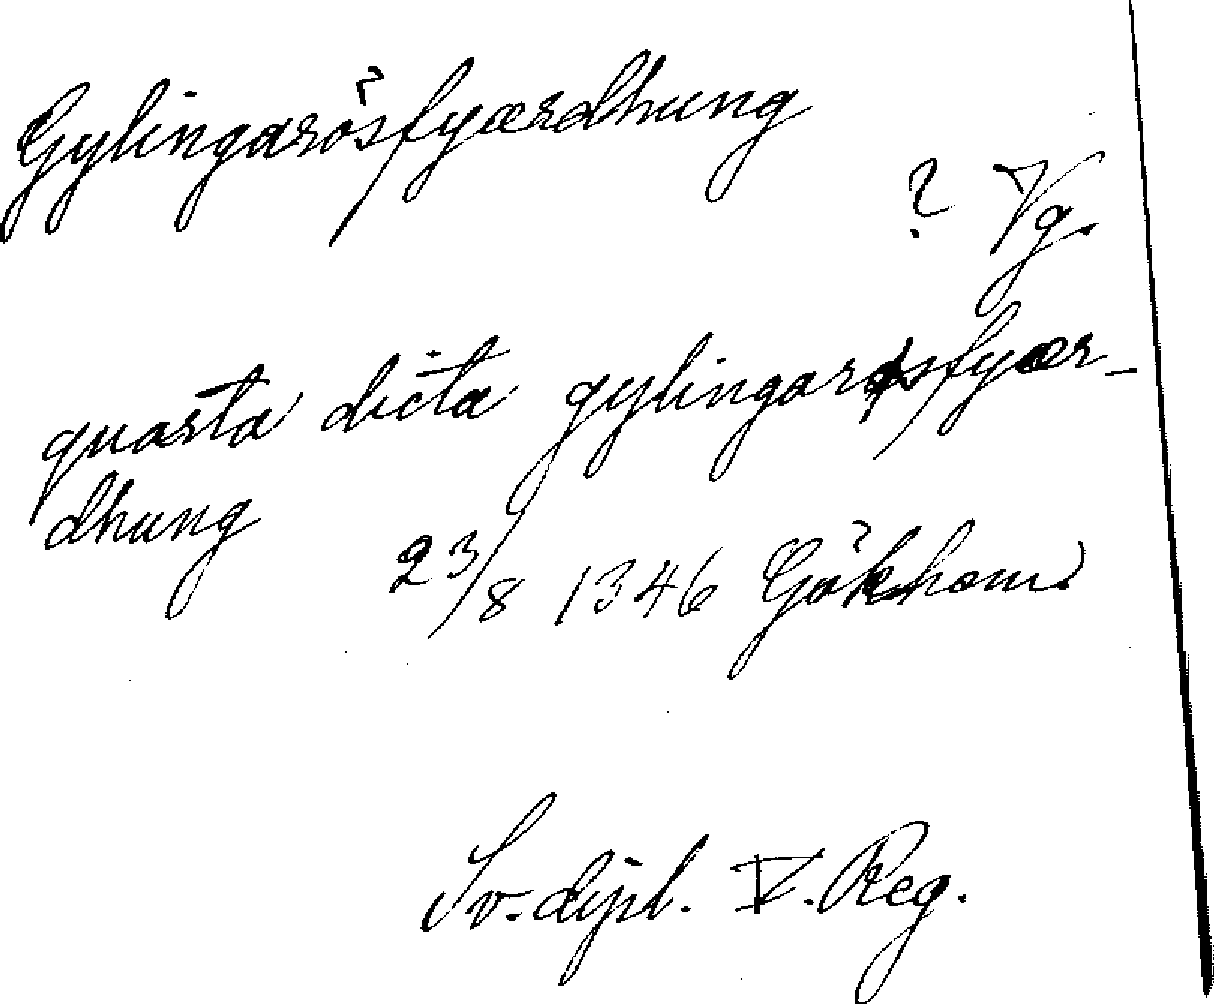 Gylingarösfyærdhung
? Vg.
quarta dicta gylingarøsfyær-
dhung
23/8 1346 Gökhem
Sv. dipl. V. Reg.